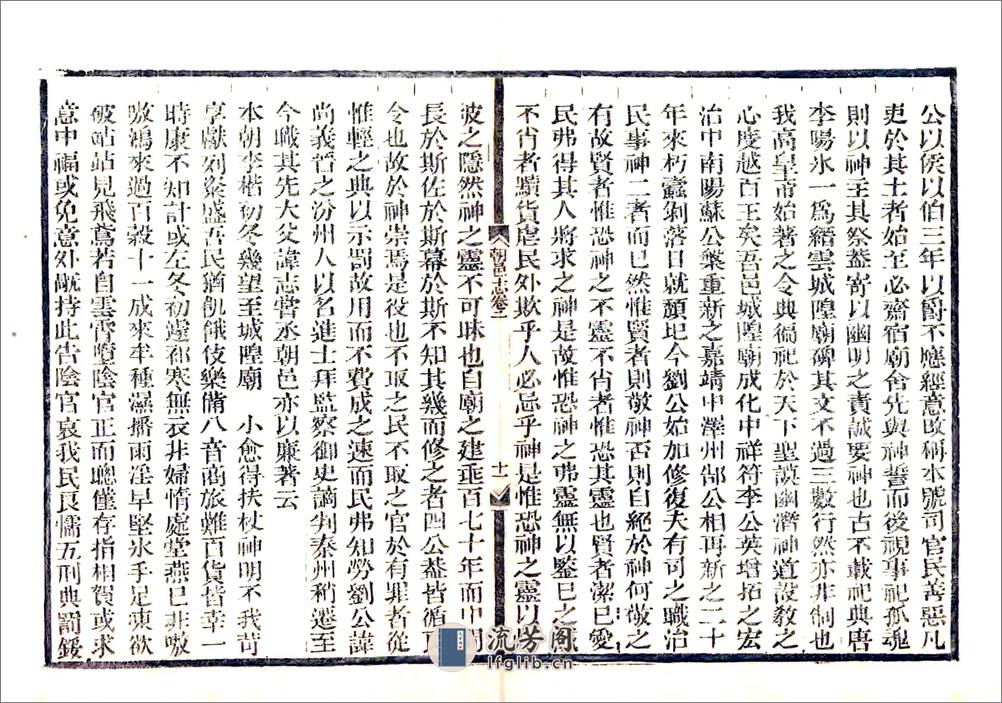 公以侯以伯三年以爵不應經意改稱本號司官民善惡凡
吏於其土者始至必齋宿廟舍先與神誓而後視事祀孤魂
則以神主其祭蓋寄以幽明之責誠要神也古不載祀典唐
李陽冰一為縉雲城隍廟碑其文不過三數行然亦非制也
我高皇帝始著之令典徧祀於天下聖謨幽濟神道設敎之
心度越百王矣吾邑城隍廟成化中祥符李公英增拓之宏
治中南陽蘇公槃重新之嘉靖中澤州郜公相再新之二十
年來朽蠹剝落日就頹圮今劉公始加修復夫有司之職治
民事神二者而已然惟賢者則敬神否則自絕於神何敬之
有故賢者惟恐神之不靈不肖者惟恐其靈也賢者潔已愛
民弗得其人將求之神是故惟恐神之弗靈無以鑒已之
不肖者黷貨虐民外欺乎人必忌乎神是惟恐神之靈以
朝邑志卷二
十一
彼之隱然神之靈不可昧也自廟之建垂百七十年而中間
長於斯佐於斯幕於斯不知其幾而修之者四公蓋皆循
令也故於神崇焉是役也不取之民不取之官於有罪者從
惟輕之典以示罰故用而不費成之速而民弗知勞劉公諱
尚義晉之汾州人以名進士拜監察御史謫判泰州稍遷至
今職其先大父諱志嘗丞朝邑亦以廉著云
本朝李楷初冬幾望至城隍廟 小愈得扶杖神明不我苛
享獻列粢盛吾民猶飢餓伎樂備八音商旅難百貨皆幸一
時康不知計或左冬初邊郡寒無衣非婦惰處堂燕已非嗷
嗷鴻來過百穀十一成來牟種濕播雨淫早堅氷手足凍欲
破跕跕見飛鳶若自雲霄墮陰官正而聰僅存指相賀或求
意中福或免意外禍持此告陰官哀我民良懦五刑典罰鍰
流芳阁
lfglib.cn